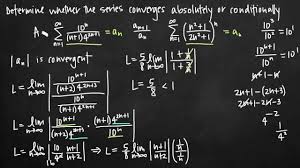 Determine whether the series converges absolutely or conditionally
A. ∞ Σ n=1 10ⁿ / (n+1)4²ⁿ⁺¹ = aₙ
aₙ₊₁ / aₙ
∞ Σ n=1 (n²+1 / 2n²+1)ⁿ = aₙ
| aₙ | is convergent
L = lim n→∞ | 10ⁿ⁺¹ / (n+2)4²ⁿ⁺³ / 10ⁿ / (n+1)4²ⁿ⁺¹ |
L = lim n→∞ | 10ⁿ⁺¹ / (n+2)4²ⁿ⁺³ · (n+1)4²ⁿ⁺¹ / 10ⁿ |
L = lim n→∞ | 10/4² · n+1 / n+2 | ⇒ L = 5/8 lim n→∞ | n+1 / n+2 |
L = 5/8 lim n→∞
L = 5/8 < 1
10³ / 10² = 10¹
2n+1-(2n+3)
2n+1-2n-3
4⁻²
1 / 4²